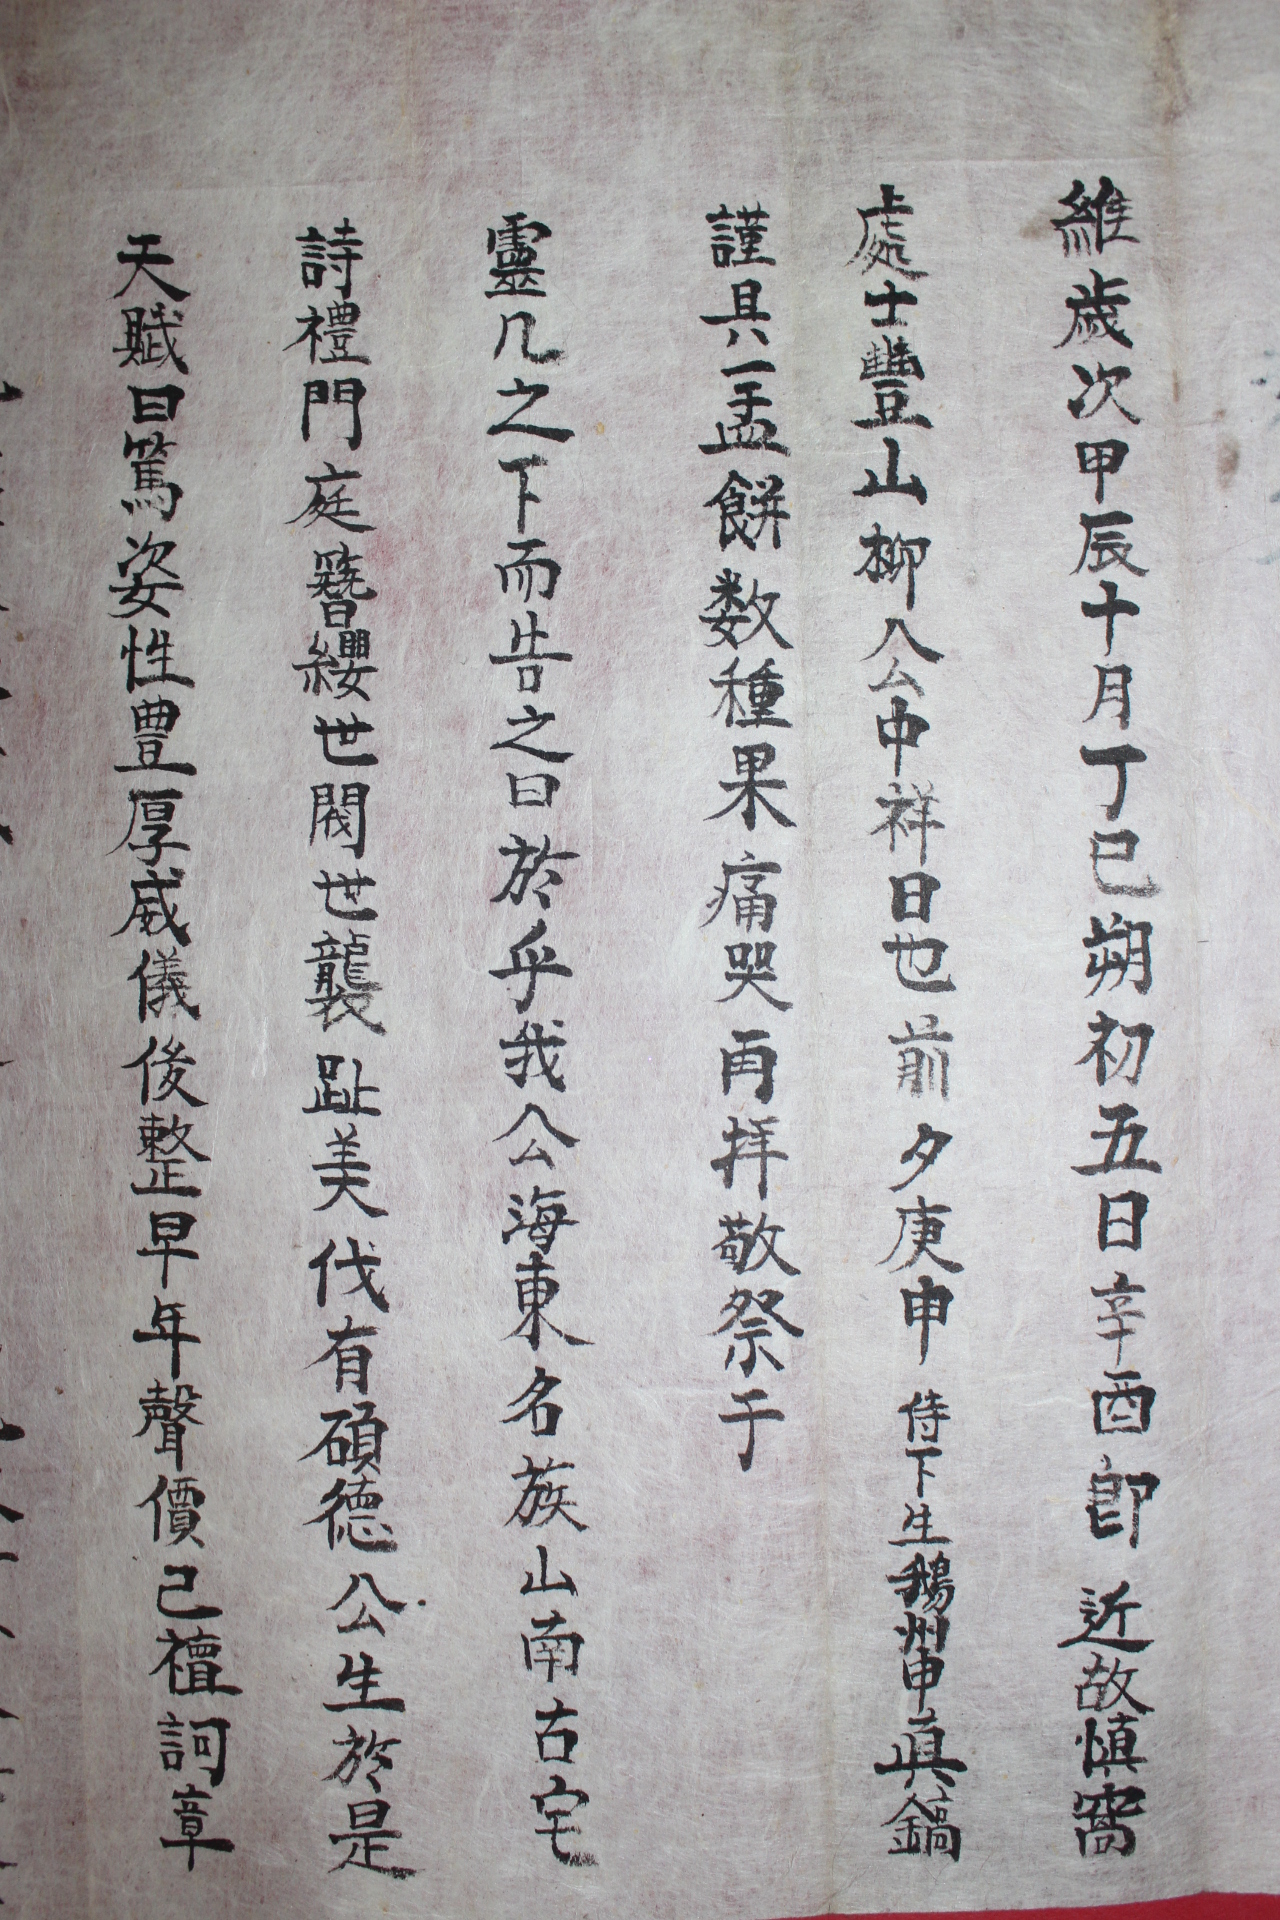 維歲次甲辰十月丁巳朔初五日辛酉卽近故愼窩
處士豐山柳公中祥日也前夕庚申侍下生鵝州申眞鎬
謹具一盂餠数種果痛哭再拜敬祭于
靈几之下而告之曰於乎我公海東名族山南古宅
詩禮門庭簪纓世閥世襲趾美代有碩德公生於是
天賦曰篤姿性豊厚威儀俊整早年聲價已䄠詞章